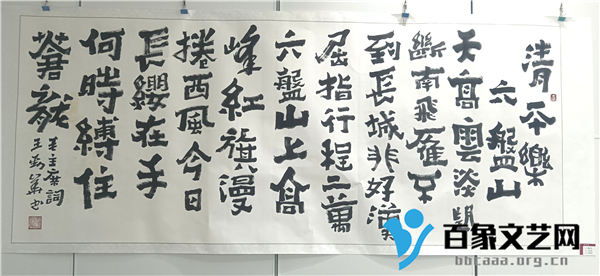 清平樂
六盤山
天高雲淡望
斷南飛雁不
到長城非好漢
屈指行程二萬
六盤山上高
峰紅旗漫
捲西風今日
長纓在手
何時縛住
蒼龍
毛主席詞
王
百象文艺网
bbtaaa.org.cn